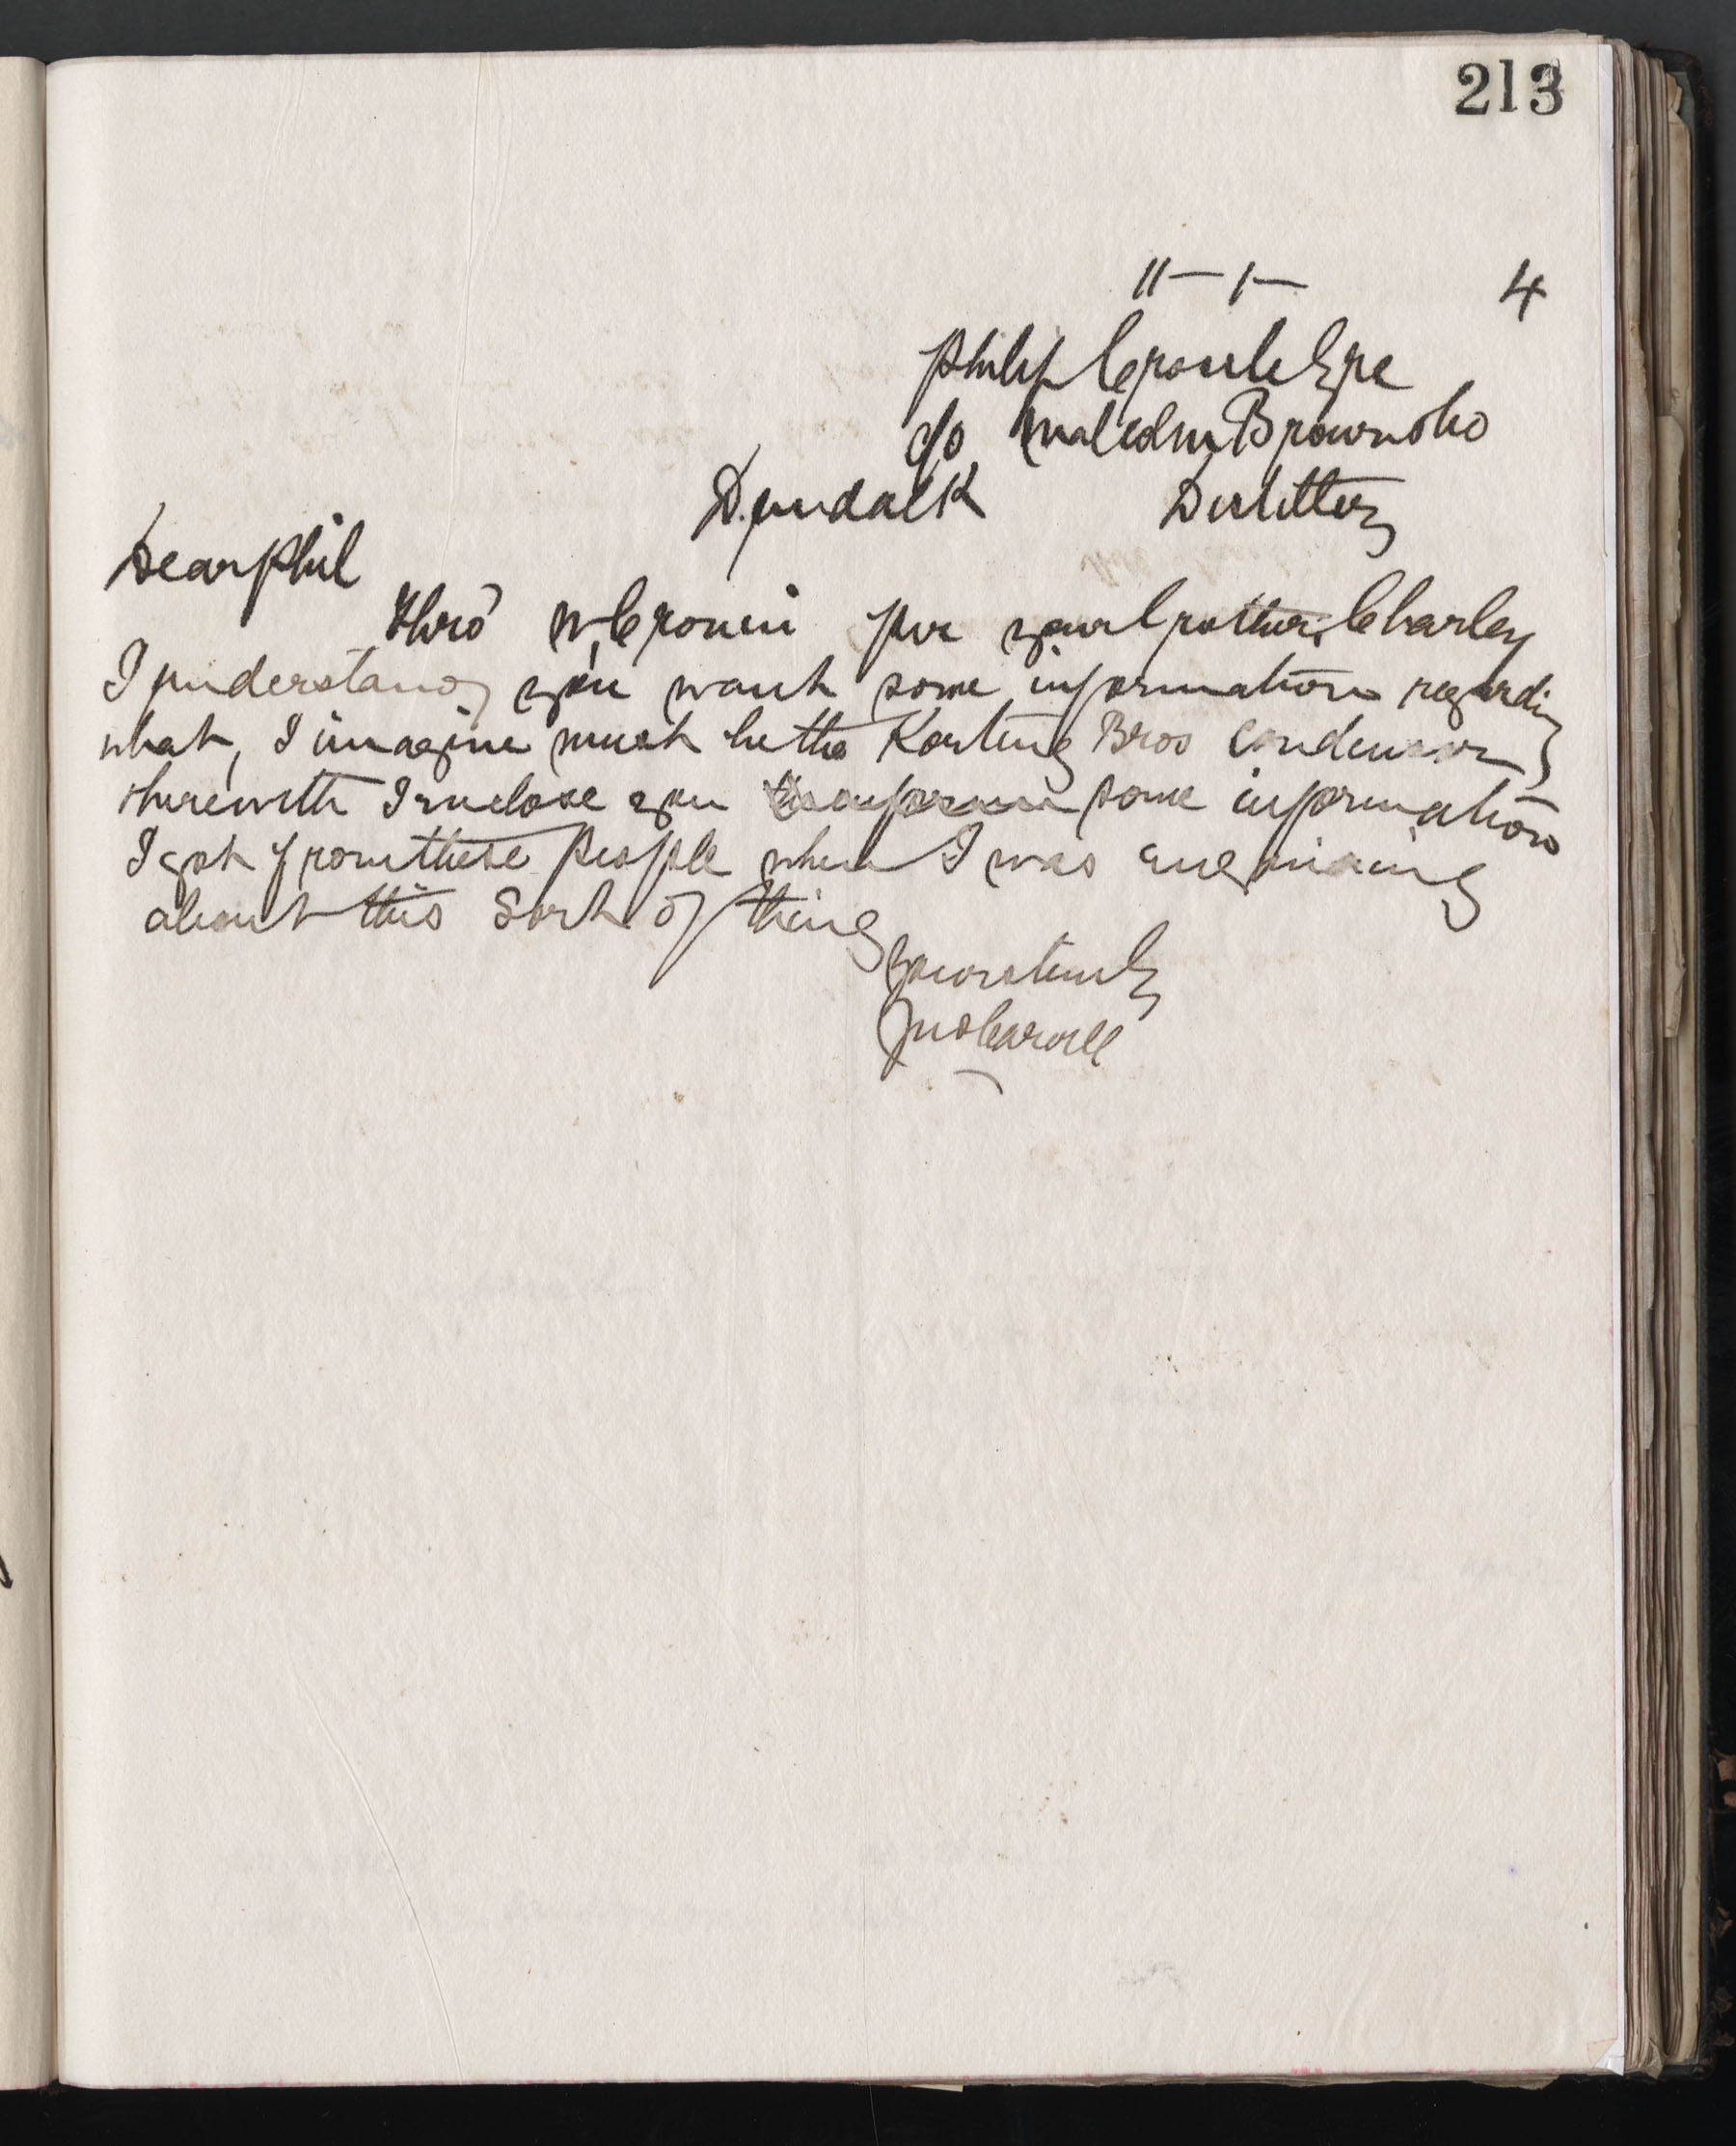 213
11 — 1 — 4
Philip Esqre
c/o Malcolm Brown & Co
Dundalk Distillery
Dear Phil
Thro' W. Cronin per your brother Charley
I understand you want some information regarding
what, I imagine must be the Korting Bros Condensor,
herewith I enclose you some information
I got from these people when I was enquiring
about this sort of thing
Yours truly
Jno Carroll